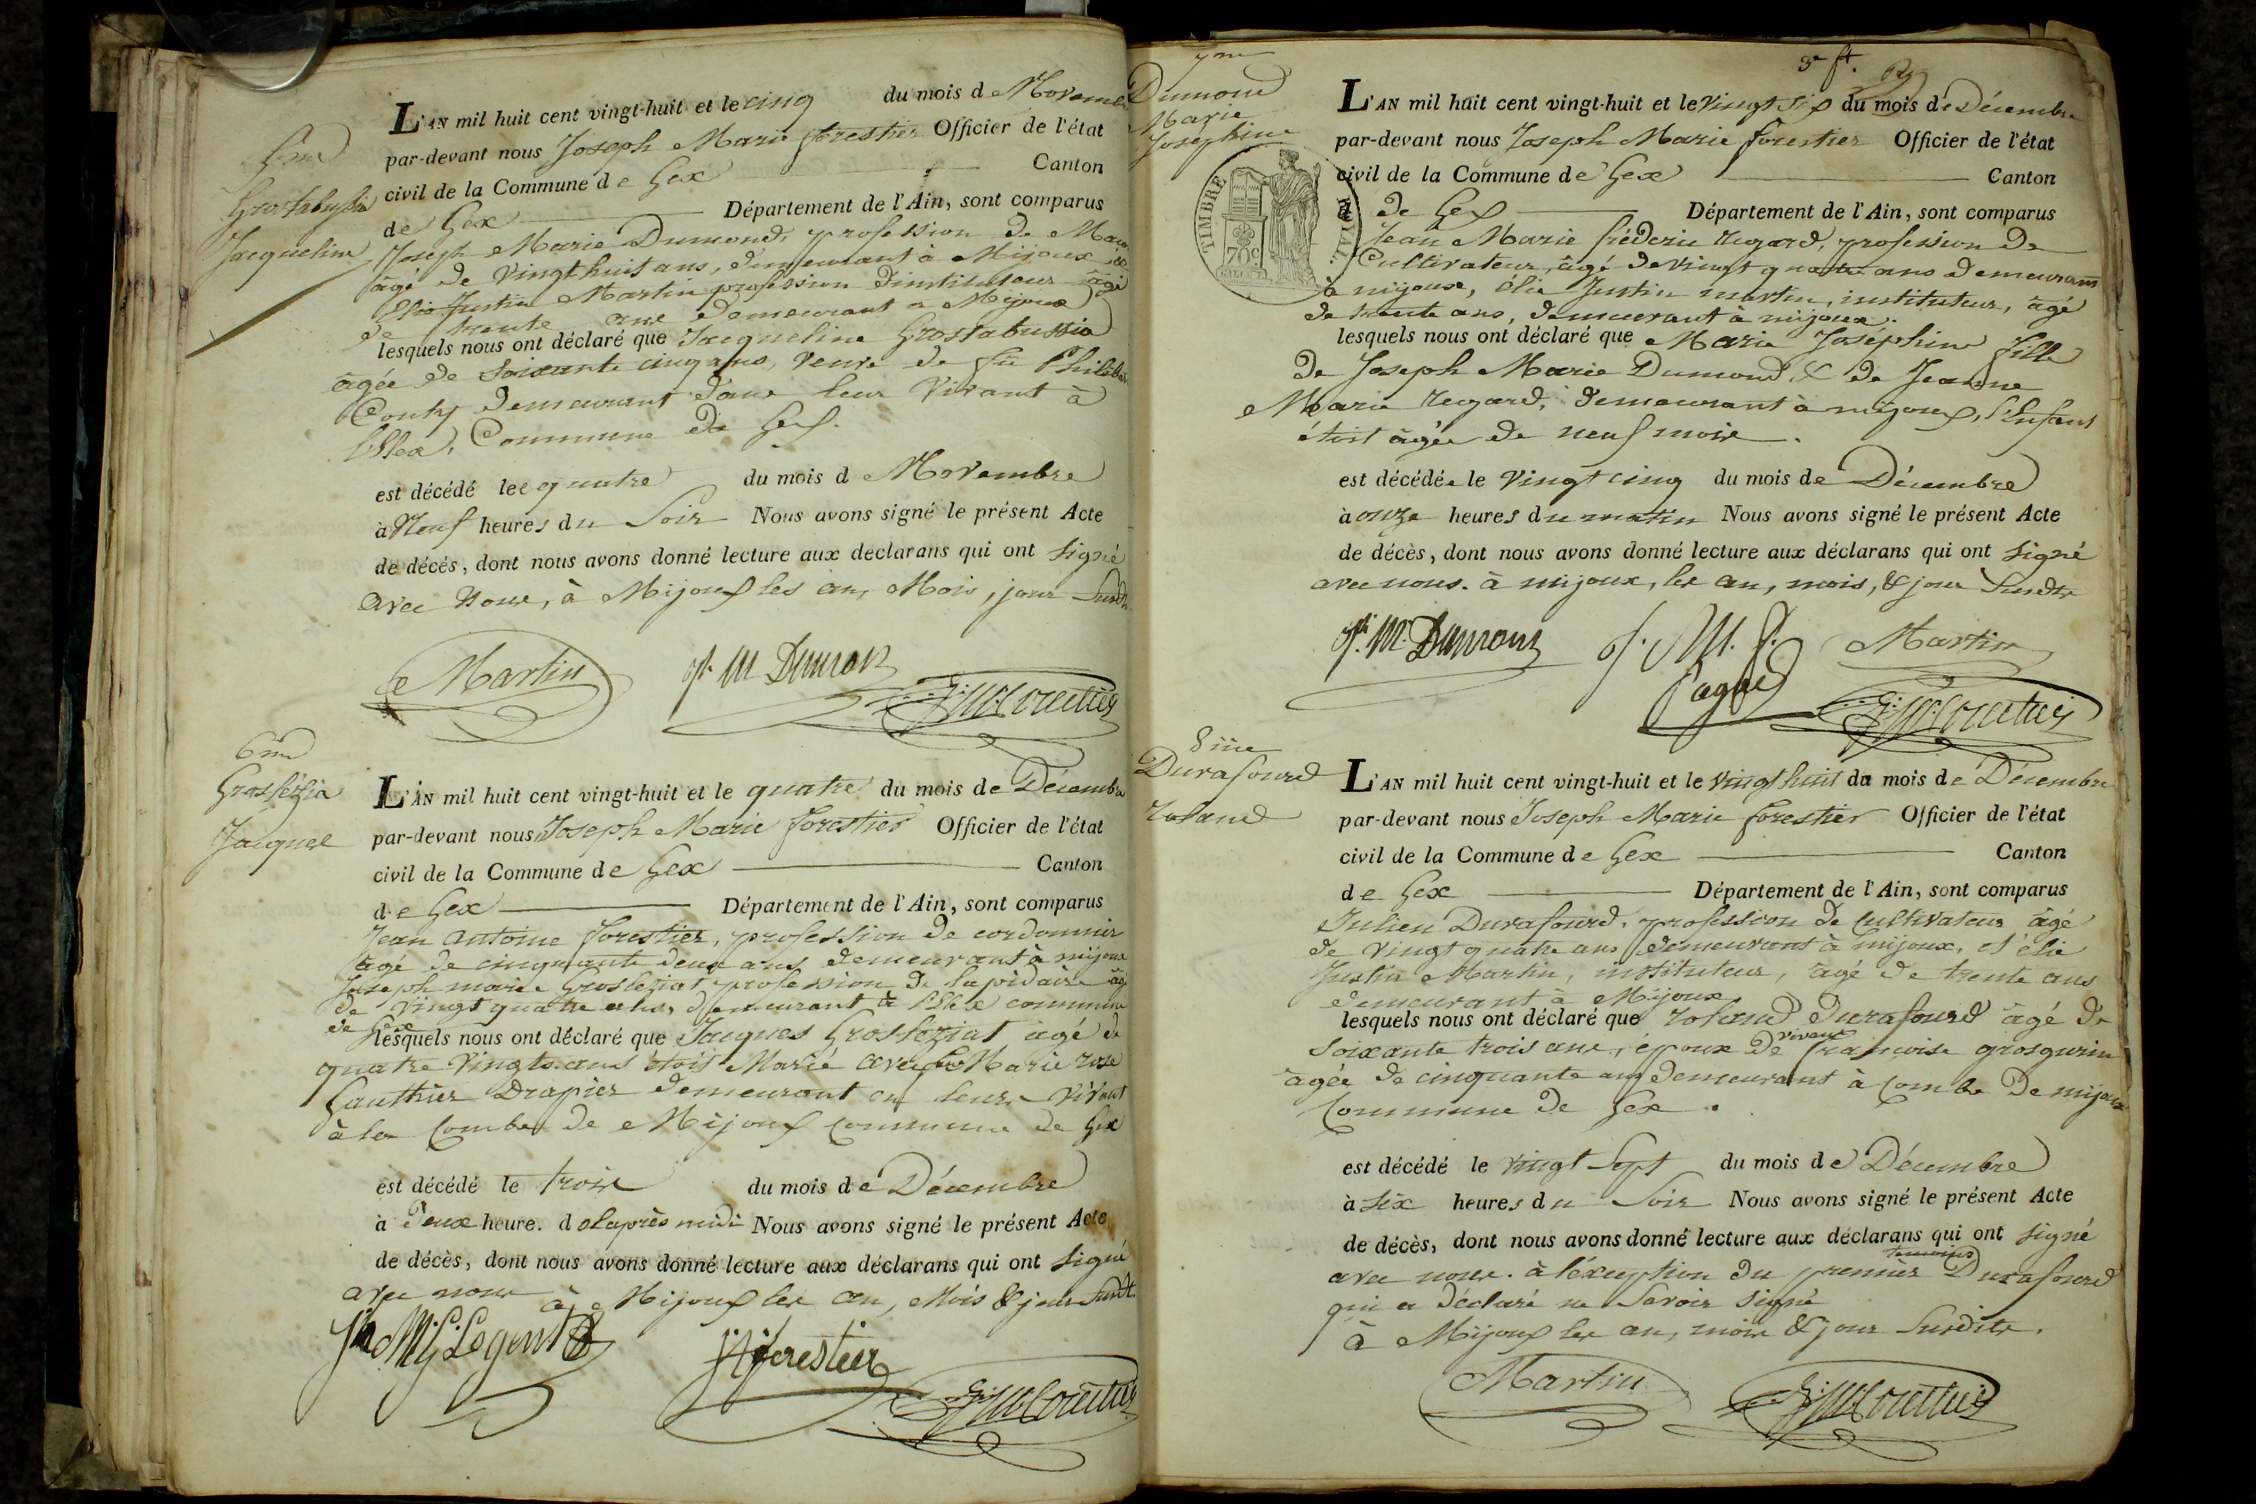 5me
Grosfabussia
Jacqueline
L'AN mil huit cent vingt-huit et le cinq du mois de Novem
par-devant nous Joseph Marie forestier Officier de l'état
civil de la Commune de Gex Canton
de Gex Département de l'Ain, sont comparus
Joseph Marie Dumond, profession de
âgé de vingt huit ans, demeurant à Mijoux
Elie Justin Martin profession d'instituteur âgé
de trente ans demeurant a Mijoux
lesquels nous ont déclaré que Jacqueline Grosfabussia
âgée de soixante cinq ans, veuve de fu Philib
demeurant dans leur vivant à
Commune de Gex.
est décédé lee quatre du mois d Novembre
à Neuf heures du Soir Nous avons signé le présent Acte
de décés, dont nous avons donné lecture aux déclarans qui ont signé
avec Nous, à Mijoux les an, Mois, jour Susdt
Martin Jh M Dumon
6me
Groslézia
Jacques
L'AN mil huit cent vingt-huit et le quatre du mois de Décembre
par-devant nous Joseph Marie forestier Officier de l'état
civil de la Commune de Gex Canton
de Gex Département de l'Ain, sont comparus
Jean antoine forestier, profession de cordonnier
âgé de cinquante deux ans demeurant à mijoux
Joseph marie Grosleziat profession de lapidaire âg
de vingt quatre ans, demeurant à commune
de Gex
lesquels nous ont déclaré que Jacques Grosleziat âgé de
quatre vingts ans étoit Marié avec Marie rose
Gauthier Drapier demeurant en leur vivant
à la Combe de Mijoux commune de Gex
est décédé le trois du mois de Décembre
à Deux heure. d olaprès midi Nous avons signé le présent Acte
de décès, dont nous avons donné lecture aux déclarans qui ont signé
avec nous à Mijoux les an, Mois & jour Susdt.
JA forestier
7me
Dumond
Marie
Josephine
TIMBRE ROYAL
70c
L'AN mil huit cent vingt-huit et le vingt six du mois de Décembre
par-devant nous Joseph Marie forestier Officier de l'état
civil de la Commune de Gex Canton
de Gex Département de l'Ain, sont comparus
Jean Marie fréderic regard, profession de
Cultivateur, âgé de vingt quatre ans demeurant
à mijoux, élie Justin martin, instituteur, âgé
de trente ans, demeurant à mijoux.
lesquels nous ont déclaré que Marie Joséphine fille
de Joseph Marie Dumond & de Jeanne
Marie regard, demeurant à mijoux, l'Enfant
étoit âgée de neuf mois.
est décédée le vingt cinq du mois de Décembre
à onze heures du matin Nous avons signé le présent Acte
de décès, dont nous avons donné lecture aux déclarans qui ont signé
avec nous. à mijoux, les an, mois, & jour Susdts
Jh. M. Dumond J. M. f. Martin
8me
Durafourd
roland
L'AN mil huit cent vingt-huit et le vingt huit du mois de Décembre
par-devant nous Joseph Marie forestier Officier de l'état
civil de la Commune de Gex Canton
de Gex Département de l'Ain, sont comparus
Julien Durafourd, profession de Cultivateur âgé
de vingt quatre ans demeurant à mijoux, et élie
Justin Martin, instituteur, âgé de trente ans
demeurant à Mijoux
lesquels nous ont déclaré que roland Durafourd âgé de
soixante trois ans, époux de vivant francoise grosgurin
âgée de cinquante ans demeurant à Combe De mijoux
Commune de Gex.
est décédé le vingt Sept du mois de Décembre
à six heures du Soir Nous avons signé le présent Acte
de décès, dont nous avons donné lecture aux déclarans qui ont signé
avec nous. à l'éxception du premier temoins Durafourd
qui a déclaré ne Savoir signé
à Mijoux les an, mois & jour Susdits.
Martin